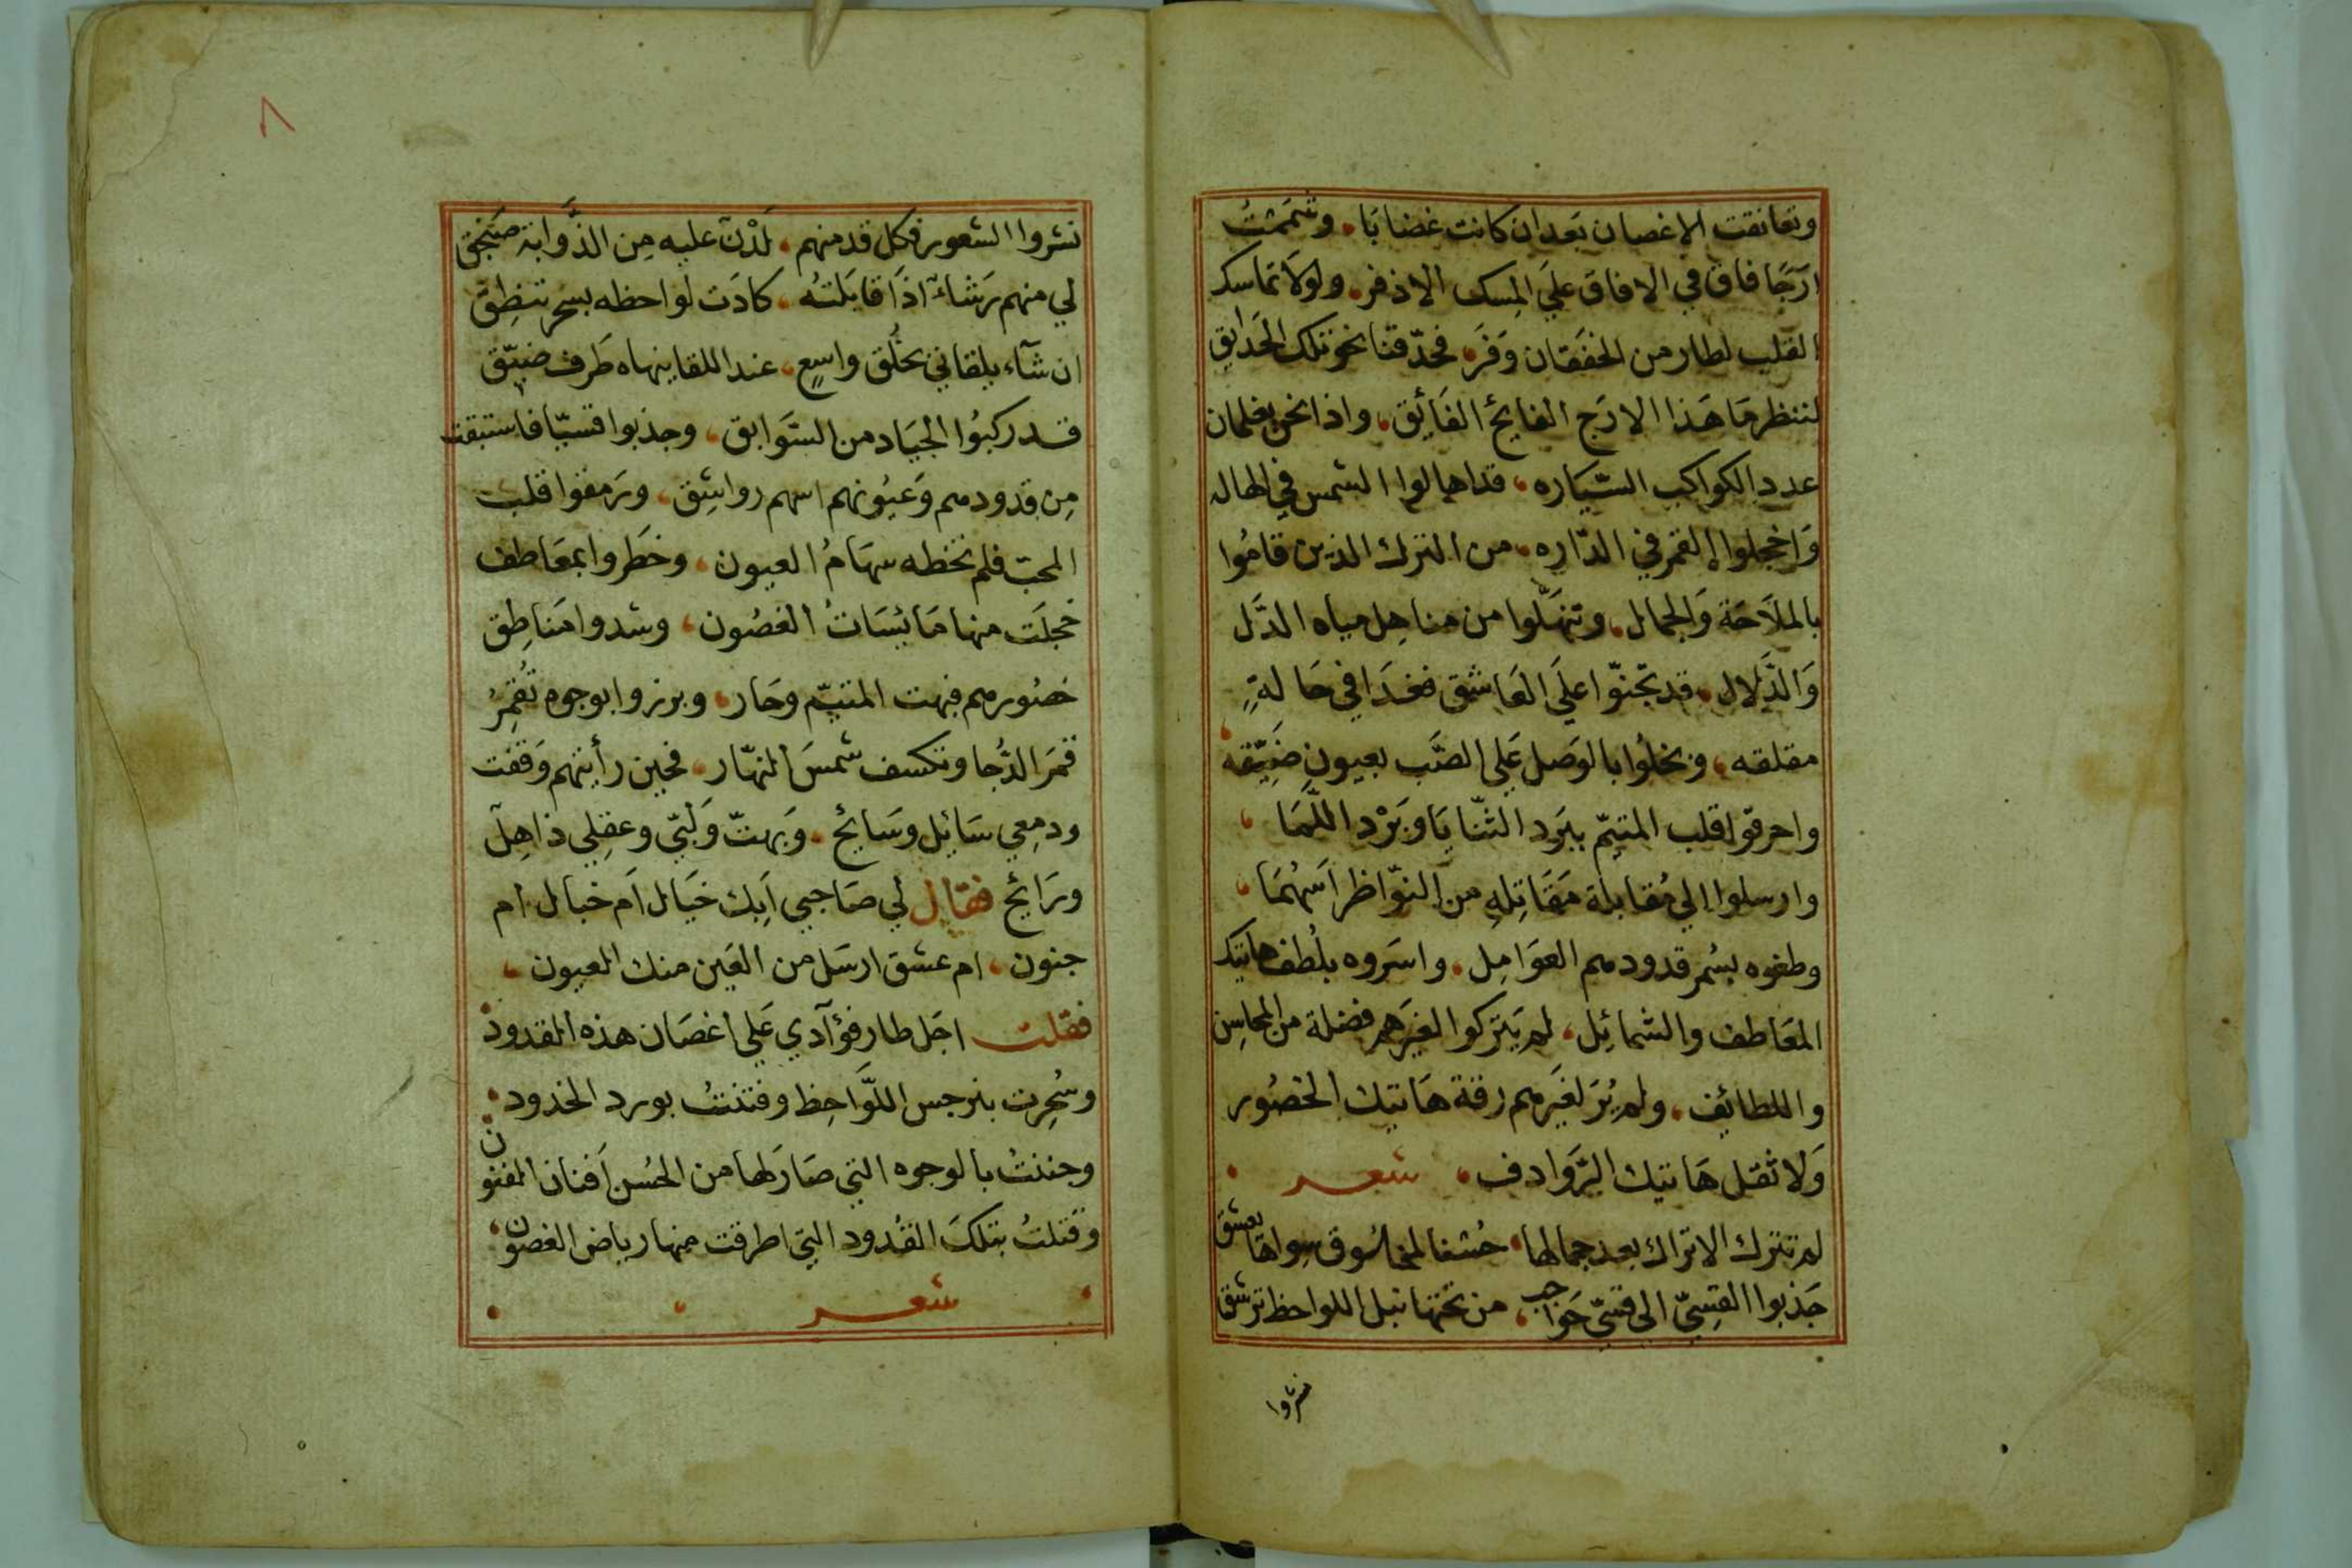 وتعانقت الاغصان بَعدان كانت غضابَا، وشممتُ
ارَجًا فاق في الافاق علَي المِسك الاذفر، ولولَا تماسك
القلب لطار من الخفَقان وَفَر، فحدّقنا نحو تلك الحَدايق
لننظر مَا هَذا الارَج الفايحُ الفَائِق، واذا نحن بغلمان
عدد الكواكب السّيَاره، قد اهالوا الشمس في الهاله
وَاخجلوا القمر في الدّاره، من الترك الذين قامُوا
بالملَاحَة وَالجمال، وتنهَّلوا من مناهِل مياه الدَّل
وَالدَّلال، قد تجنّوا علَي العَاشق فغدَا في حَالةٍ
مقلقه، وبخلُوا بالوَصل عَلي الصَّب بعيونٍ ضَيّقه
واحرقوا قلب المتيّم ببَرَد الثّنايَا وبَرْد اللَّمَا،
وارسلوا الي مُقابلة مَقَاتِلهِ من النوّاظر اَسهُمَا،
وطعوه بسُمر قدودهم العوَامِل، واسَروه بلُطف هاتيك
المعَاطف والشمائِل، لم يَتركوا لغيَرهم فضلة من المحاسِن
واللطائِف، ولم يُرَ لغيَرهم رقة هَاتيك الخصُور
وَلا ثقل هَاتيك الرّوَادف، شعر
لم تترك الاتراك بعد جمالها، حُسنا لمخلوق سِواها يعشق
جَذبوا القِسِيّ الى قسّي حَواجب، من تحتها نبل اللواحظ ترشق
نشروا
٨
نشروا الشعور فكل قد منهم، لَدْنٌ عليه مِن الذَّوابة صَنْجَق
لي منهم رَشَاءٌ اذَا قابَلتهُ، كادَت لواحظه بسحر تنطِق
ان شآء يلقاني بخُلُق واسعٍ، عند اللقا ينهاه طَرف ضيّق
قد ركبُوا الجيَاد من السَّوابق، وجذبوا قسيّا فاستبقت
مِن قدودهم وَعيُونهم اسهم رواشِق، ورَمقوا قلب
المحبّ فلم تخطه سهَامُ العيون، وخَطَروا بمعَاطف
خجلَت منها مَائسَاتُ الغصُون، وشدوا مَناطِق
خصُورهم فبهت المتيّم وحَار، وبرزوا بوجوه تُقمِرُ
قمَرَ الدُّجا وتكسف شمسَ النّهَار، فحين رأيتهم وَقفت
ودمعِي سَائِل وسَائحٌ، وَبهتّ وَلبّي وعقلِي ذاهِلٌ
ورَائحٌ فقال لي صَاحبي اَبِك خيَال اَم خبال ام
جنون، ام عشق ارسَل من العَين منك العيون،
فقلت اجَل طار فؤآدي عَلي اغصَان هذه القدود
وسُحِرت بنرجس اللّوَاحِظ وفتنتُ بورد الخدود
وجننتُ بالوجوه التي صَارَ لها من الحُسن اَفنان الفنون
وَقتلتُ بتلكَ القُدود التي اطرقت منها رياض الغصون،
شعر